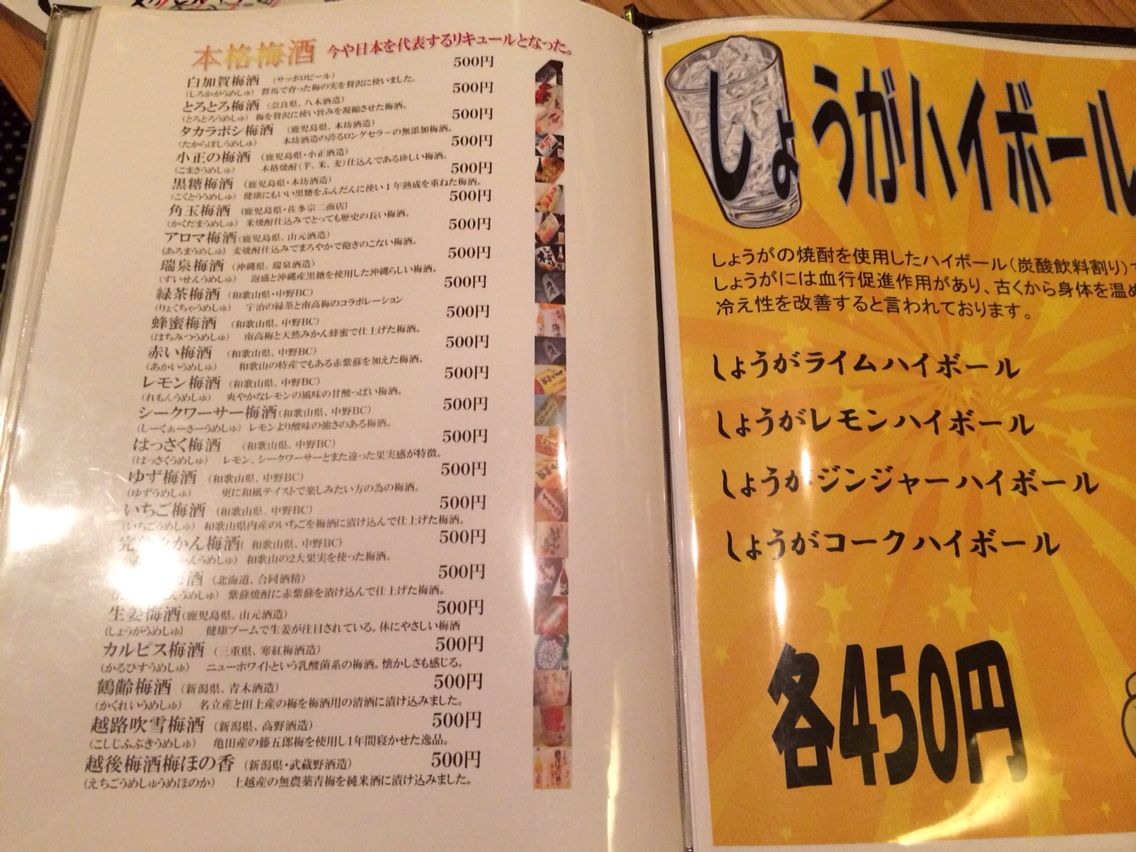 本格梅酒 今や日本を代表するリキュールとなった。
白加賀梅酒 (サッポロビール) 500円
(しろかがうめしゅ) 群馬で育った梅の実を贅沢に使いました。
とろとろ梅酒 (奈良県、八木酒造) 500円
(とろとろうめしゅ) 梅を贅沢に使い旨みを凝縮させた梅酒。
タカラボシ梅酒 (鹿児島県、本坊酒造) 500円
(たからぼしうめしゅ) 本坊酒造の誇るロングセラーの無添加梅酒。
小正の梅酒 (鹿児島県・小正酒造) 500円
(こまさうめしゅ) 本格焼酎(芋、米、麦)仕込んである珍しい梅酒。
黒糖梅酒 (鹿児島県・本坊酒造) 500円
(こくとううめしゅ) 健康にもいい黒糖をふんだんに使い1年熟成を重ねた梅酒。
角玉梅酒 (鹿児島県・佐多宗二商店) 500円
(かくだまうめしゅ) 米焼酎仕込みでとっても歴史の長い梅酒。
アロマ梅酒 (鹿児島県、山元酒造) 500円
(あろまうめしゅ) 麦焼酎仕込みでまろやかで飽きのこない梅酒。
瑞泉梅酒 (沖縄県、瑞泉酒造) 500円
(ずいせんうめしゅ) 泡盛と沖縄産黒糖を使用した沖縄らしい梅酒。
緑茶梅酒 (和歌山県・中野BC) 500円
(りょくちゃうめしゅ) 宇治の緑茶と南高梅のコラボレーション
蜂蜜梅酒 (和歌山県、中野BC) 500円
(はちみつうめしゅ) 南高梅と天然みかん蜂蜜で仕上げた梅酒。
赤い梅酒 (和歌山県、中野BC) 500円
(あかいうめしゅ) 和歌山の特産でもある赤紫蘇を加えた梅酒。
レモン梅酒 (和歌山県、中野BC) 500円
(れもんうめしゅ) 爽やかなレモンの風味の甘酸っぱい梅酒。
シークワーサー梅酒 (和歌山県、中野BC) 500円
(しーくぁーさーうめしゅ) レモンより酸味の強さのある梅酒。
はっさく梅酒 (和歌山県、中野BC) 500円
(はっさくうめしゅ) レモン、シークワーサーとまた違った果実感が特徴。
ゆず梅酒 (和歌山県、中野BC) 500円
(ゆずうめしゅ) 更に和風テイストで楽しみたい方の為の梅酒。
いちご梅酒 (和歌山県、中野BC) 500円
(いちごうめしゅ) 和歌山県内産のいちごを梅酒に漬け込んで仕上げた梅酒。
かん梅酒 (和歌山県、中野BC) 500円
んうめしゅ) 和歌山の2大果実を使った梅酒。
梅酒 (北海道、合同酒精) 500円
うめしゅ) 紫蘇焼酎に赤紫蘇を漬け込んで仕上げた梅酒。
生姜梅酒 (鹿児島県、山元酒造) 500円
(しょうがうめしゅ) 健康ブームで生姜が注目されている。体にやさしい梅酒
カルピス梅酒 (三重県、寒紅梅酒造) 500円
(かるぴすうめしゅ) ニューホワイトという乳酸菌系の梅酒。懐かしさも感じる。
鶴齢梅酒 (新潟県、青木酒造) 500円
(かくれいうめしゅ) 名立産と田上産の梅を梅酒用の清酒に漬け込みました。
越路吹雪梅酒 (新潟県、高野酒造) 500円
(こしじふぶきうめしゅ) 亀田産の藤五郎梅を使用し1年間寝かせた逸品。
越後梅酒梅ほの香 (新潟県・武蔵野酒造) 500円
(えちごうめしゅうめほのか) 上越産の無農薬青梅を純米酒に漬け込みました。
しょうがハイボール
しょうがの焼酎を使用したハイボール(炭酸飲料割り)で
しょうがには血行促進作用があり、古くから身体を温め
冷え性を改善すると言われております。
しょうがライムハイボール
しょうがレモンハイボール
しょうがジンジャーハイボール
しょうがコークハイボール
各450円